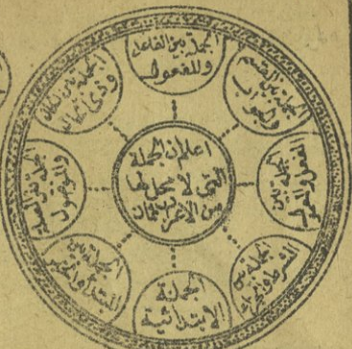 اعلم ان الجملة
التي لا محل لها
من الاعراب ثمان
الجملة بين الفاعل
والمفعول
الجملة بين القسم
والجواب
الجملة بين
الشرط والجزاء
الجملة
الابتدائية
الجملة بين
المبتدا والخبر
الجملة بين
والموصول
الجملة بين
وذى الحال